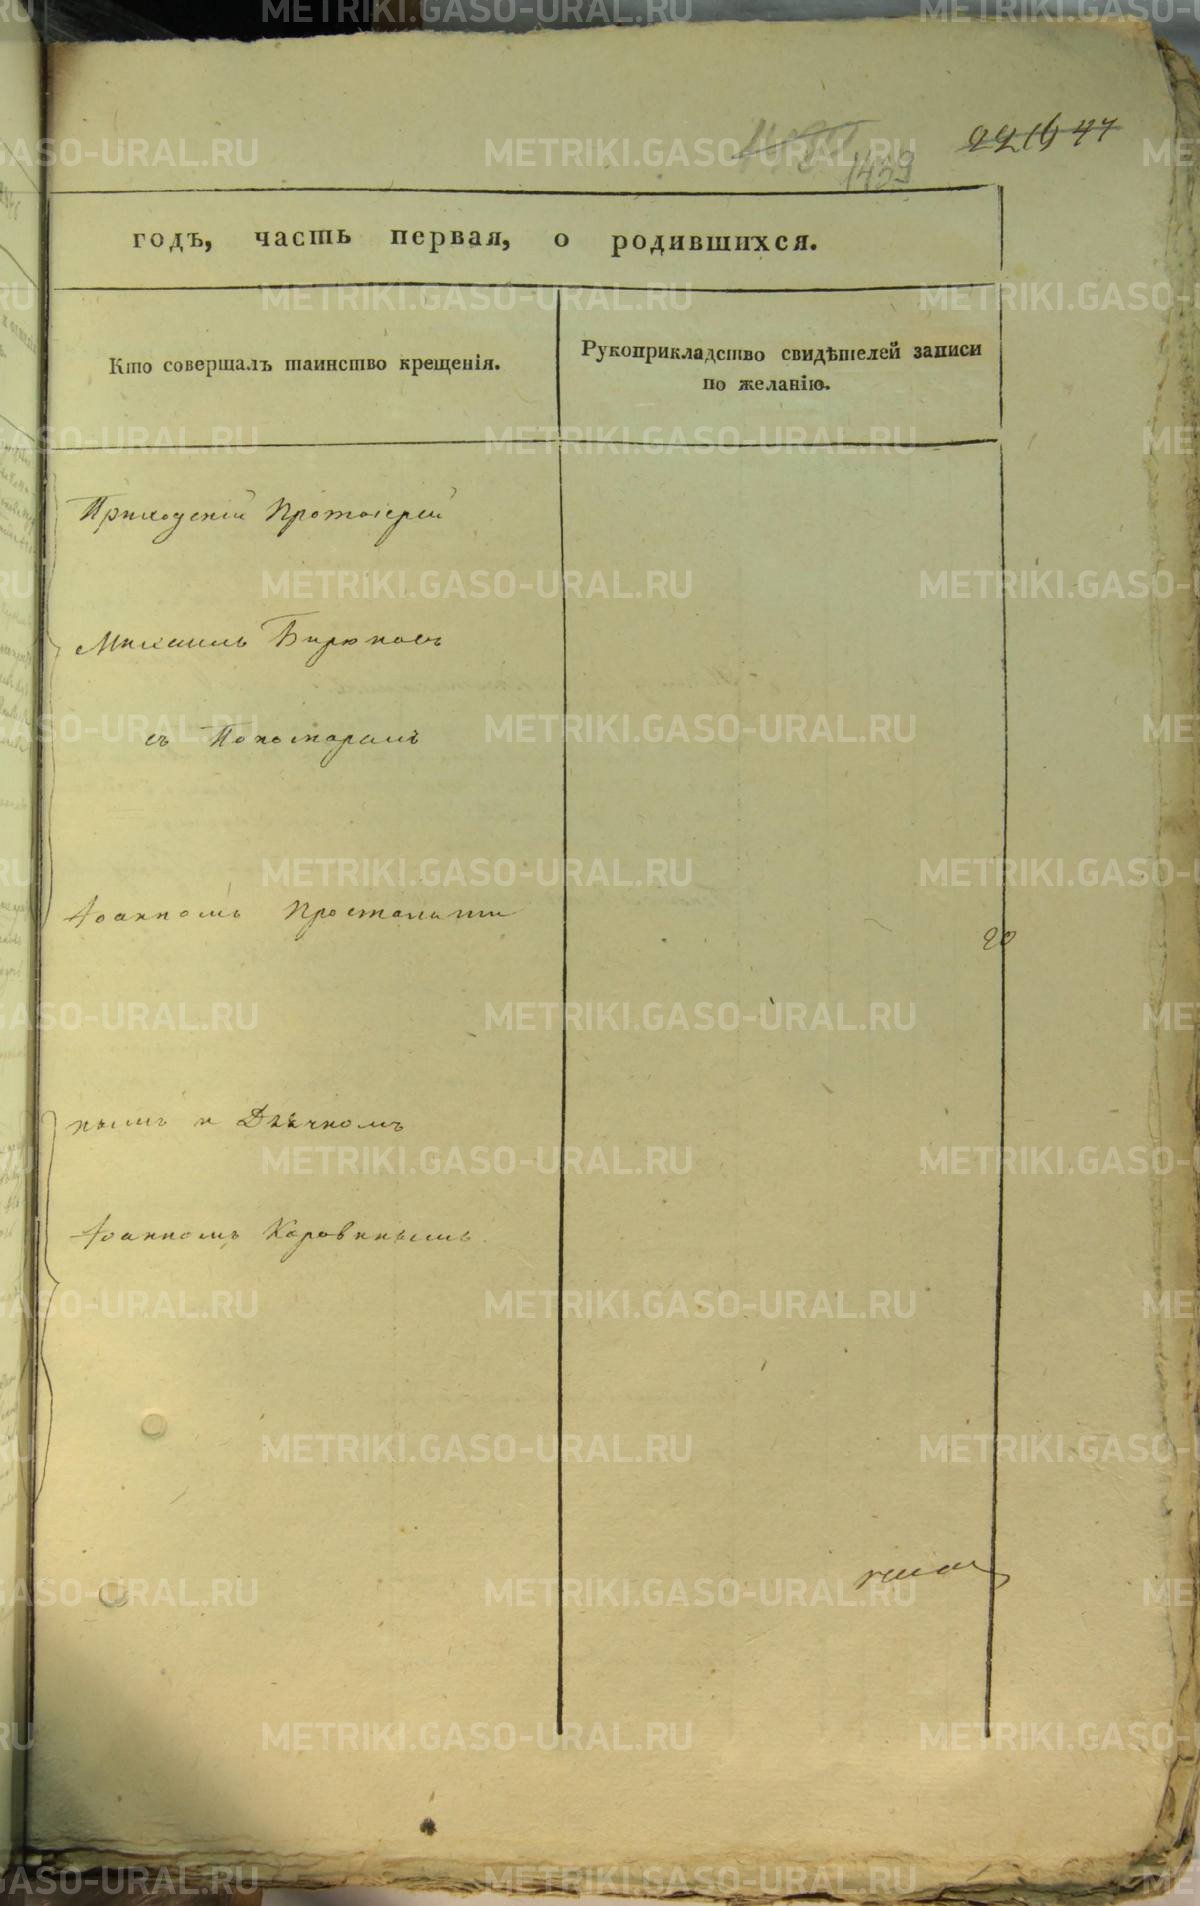 1439
годъ, часть первая, о родившихся.
Кто совершалъ таинство крещенія.
Рукоприкладство свидѣтелей записи
по желанію.
Приходскій Протоіерей
Михаилъ Бирюковъ
съ Пономаремъ
Іоанномъ Простаки
20
нымъ и Дьячкомъ
Іоанномъ Коровинымъ.
METRIKI.GASO-URAL.RU